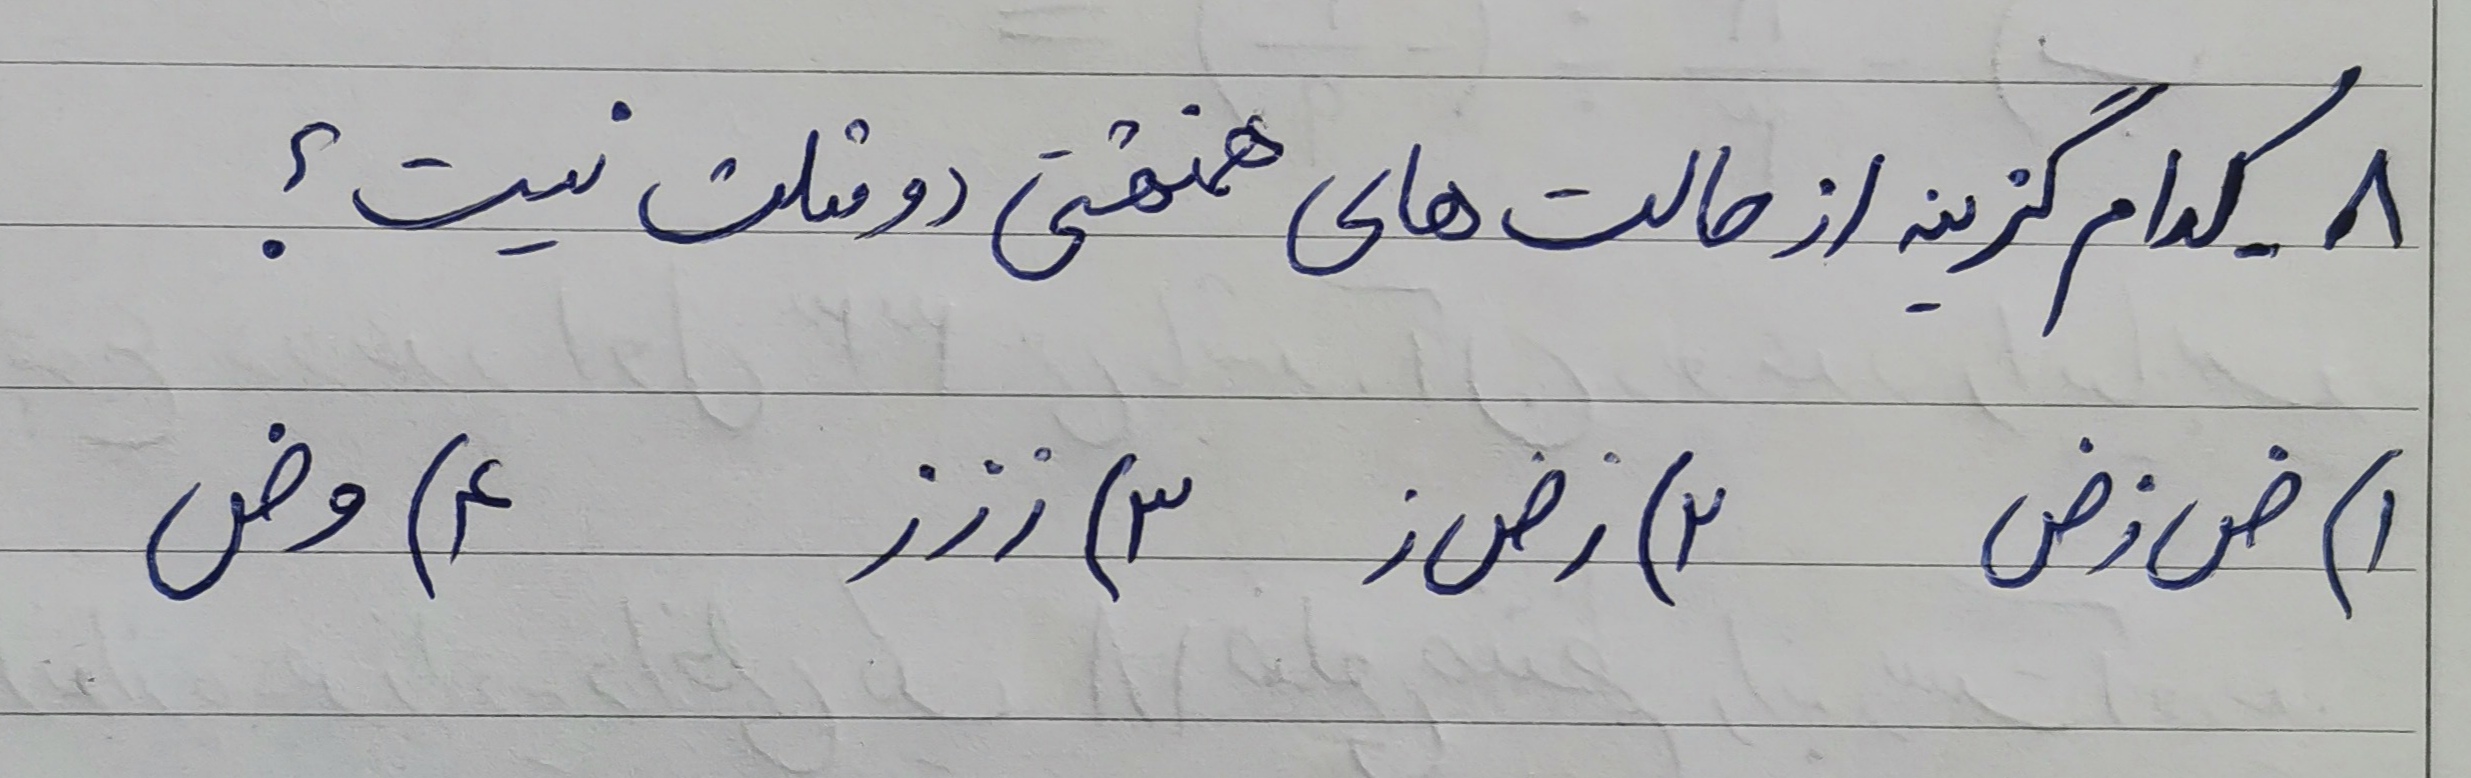 ۸ـ کدام گزینه از حالت های همنهشتی دو مثلث نیست؟
۱) ض ز ض ۲) ز ض ز ۳) ز ز ز ۴) و ض